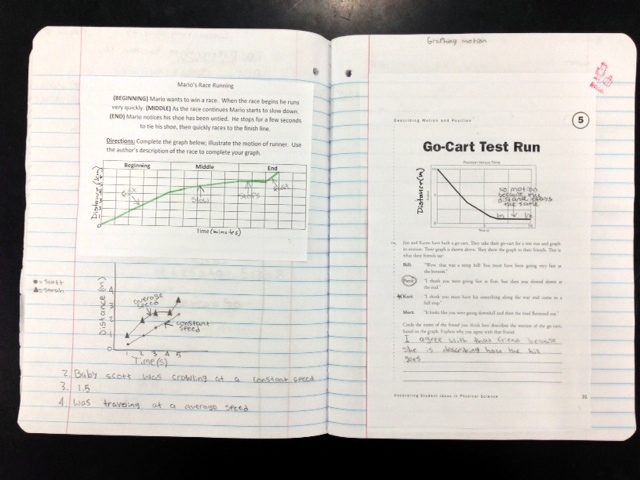 Mario's Race Running
(BEGINNING) Mario wants to win a race. When the race begins he runs
very quickly. (MIDDLE) As the race continues Mario starts to slow down.
(END) Mario notices his shoe has been untied. He stops for a few seconds
to tie his shoe, then quickly races to the finish line.
Directions: Complete the graph below; illustrate the motion of runner. Use
the author's description of the race to complete your graph.
Beginning Middle End
Distance (km)
fast
slow
stops
fast
Time (minutes)
Scott
Sarah
Distance (m)
average
speed
constant
speed
1 2 3 4 5
Time (s)
2. Baby scott was crawling at a constant speed
3. 1.5
4. was traveling at a average speed
Graphing motion
Describing Motion and Position
5
Go-Cart Test Run
Distance (m)
no motion
because the
distance stays
the same
Jim and Karen have built a go-cart. They take their go-cart for a test run and graph
its motion. Their graph is shown above. They show the graph to their friends. This is
what their friends say:
Bill: "Wow, that was a steep hill! You must have been going very fast at
the bottom."
"I think you were going fast at first, but then you slowed down at
the end."
Kari: "I think you must have hit something along the way and come to a
full stop."
Mort: "It looks like you were going downhill and then the road flattened out."
Circle the name of the friend you think best describes the motion of the go-cart,
based on the graph. Explain why you agree with that friend.
I agree with that friend because
she is describing how the
goes
Uncovering Student Ideas in Physical Science